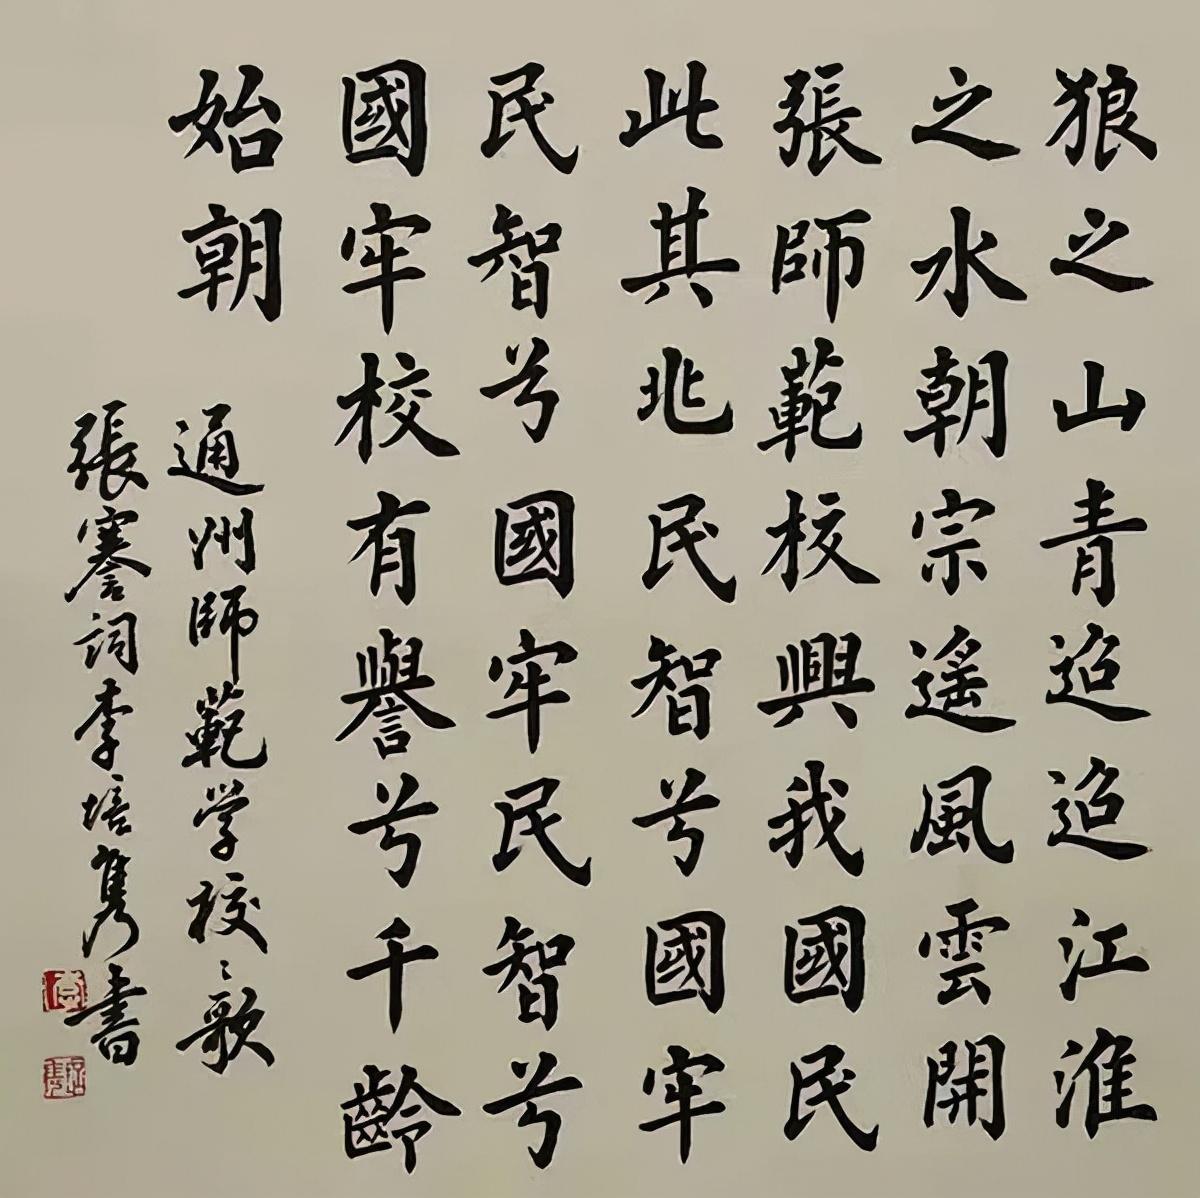 狼之山青迢迢江淮
之水朝宗遥風雲開
張師範校興我國民
此其兆民智兮國牢
民智兮國牢民智兮
國牢校有譽兮千齡
始朝
通州師範学校〻歌
張謇詞李培隽書